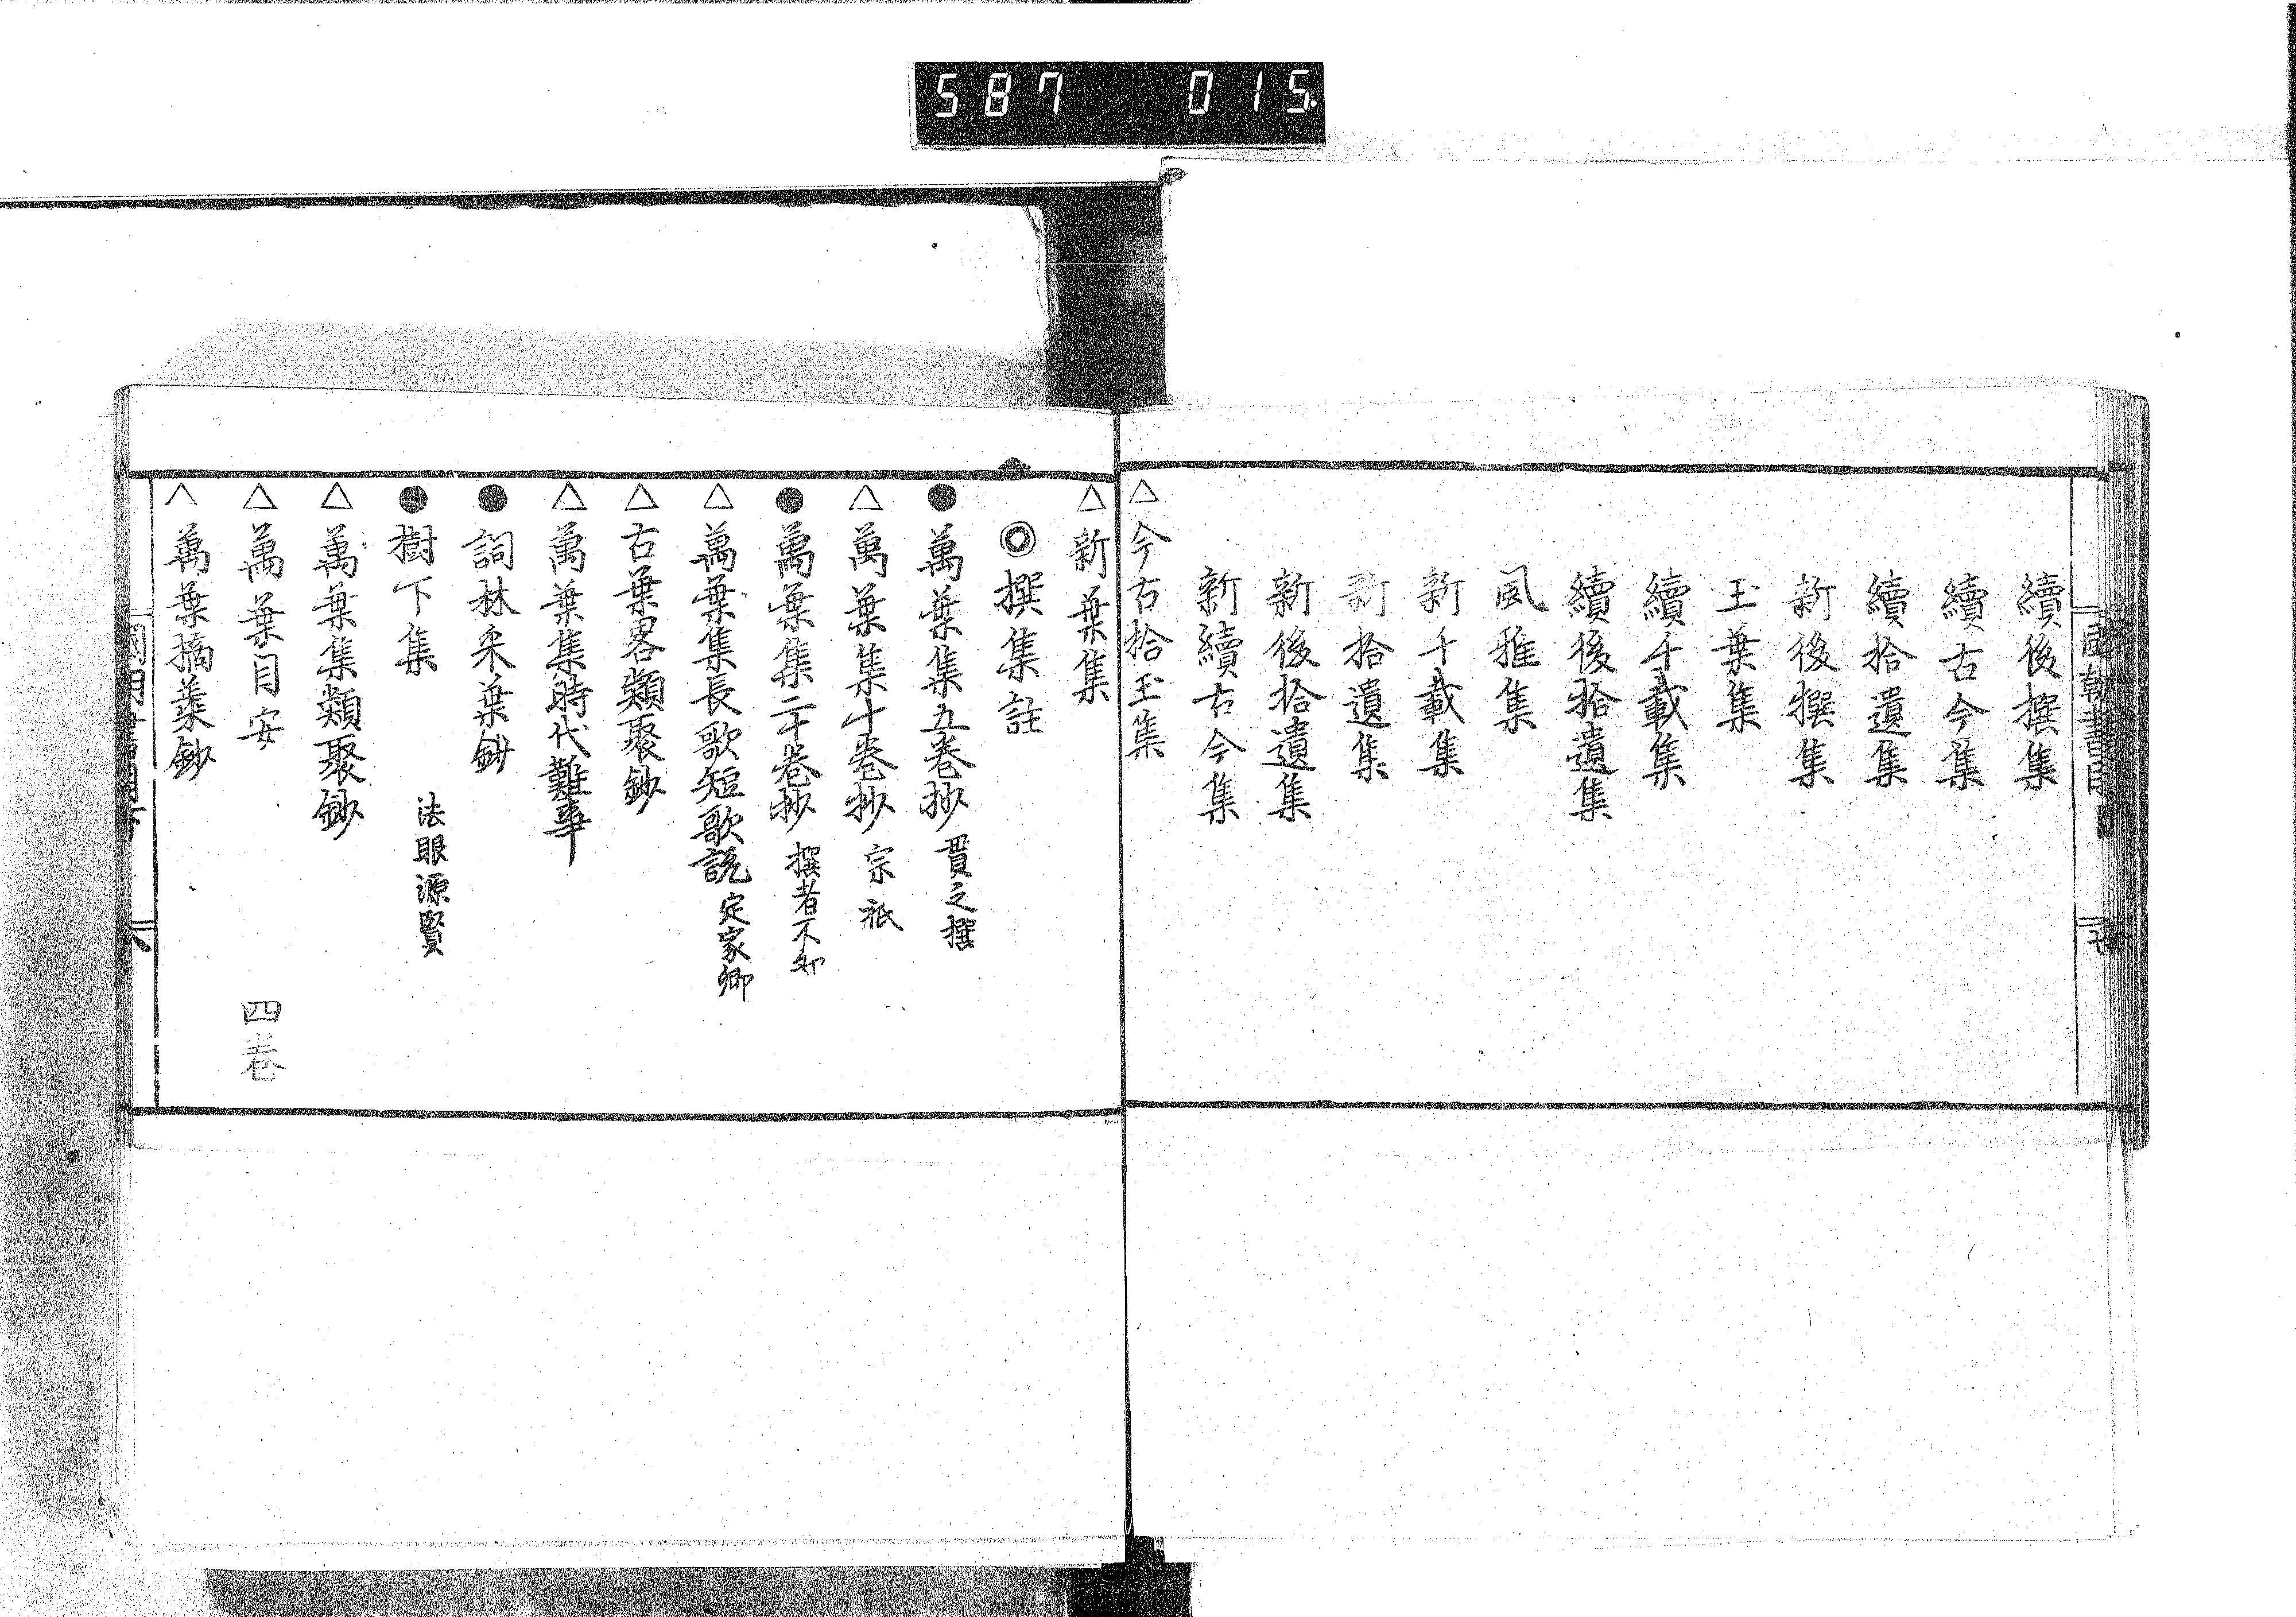 587 015.
續後撰集
續古今集
續拾遺集
新後撰集
玉葉集
續千載集
續後拾遺集
風雅集
新千載集
新拾遺集
新後拾遺集
新續古今集
△今古拾玉集
△新葉集
◎撰集註
●萬葉集五卷抄 貫之撰
△萬葉集十卷抄 宗祇
●萬葉集二十卷抄 撰者不知
△萬葉集長歌短歌説 定家卿
△古葉畧類聚鈔
△萬葉集時代難事
●詞林采葉鈔
●樹下集 法眼源賢
△萬葉集類聚鈔
△萬葉目安 四卷
△萬葉摘葉鈔